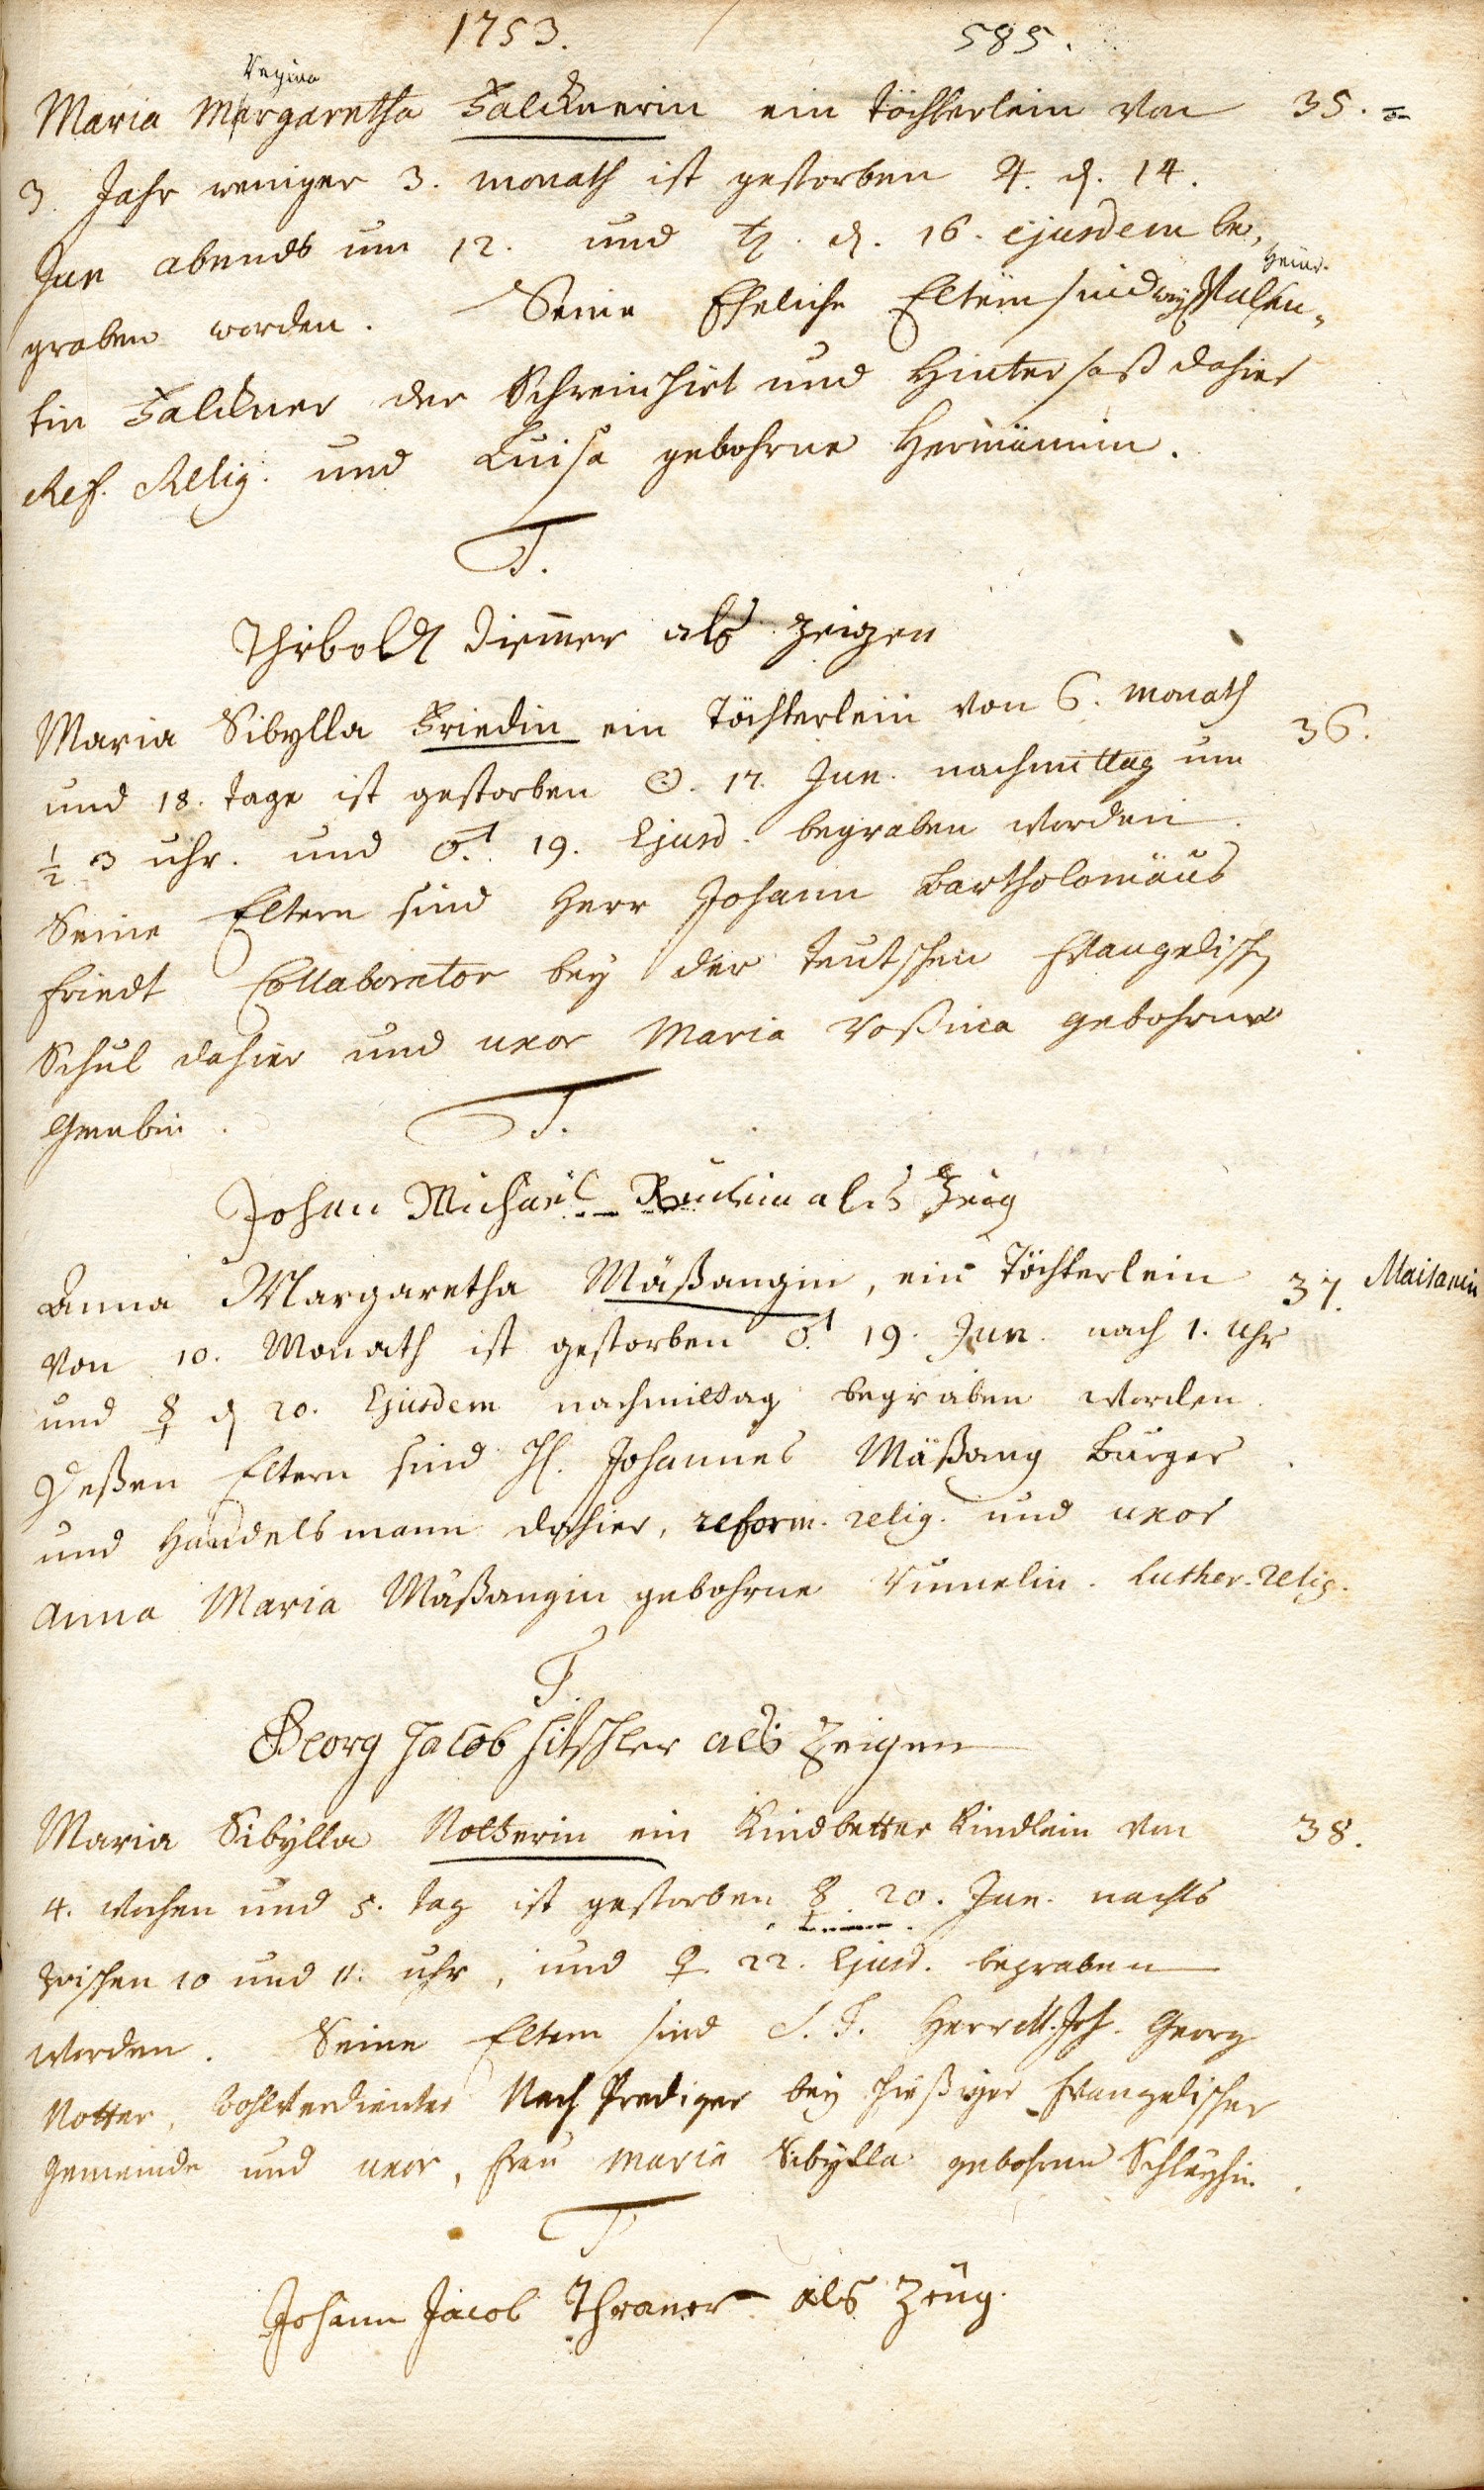 1753. 585.
Regina
Maria Margaretha Falcknerin ein töchterlein von 35.
3. Jahr weniger 3. monath ist gestorben ♃. d. 14.
Jun abends um 12. und ♄. d. 16. ejusdem be,
Heinr.
graben worden. Seine Eheliche Eltern sind Valen,
tin Falckner der Schweinhirt und Hintersaß dahier
Ref. Relig. und Luisa gebohrne Hermännin.
T.
Thiebold Diemer als zeigen
Maria Sibylla Friedin ein Töchterlein von 6. monath 36.
und 18. tage ist gestorben ☉. 17. Jun. nachmittag um
½ 3 uhr. und ♂. 19. Ejusd. begraben worden.
Seine Eltern sind Herr Johann Bartholomäus
Friedt Collaborator bey der teutschen Evangelisch
Schul dahier und uxor Maria Rosina gebohrne
T.
Johann Michael als Zeug
Anna Margaretha Mäßangin, ein Töchterlein 37. Maisanin
von 10. Monath ist gestorben ♂. 19. Jun. nach 1. Uhr
und ☿ d 20. Ejusdem nachmittag begraben worden.
Deßen Eltern sind H. Johannes Mäßang Burger
und Handelsmann dahier, reform. relig. und uxor
Anna Maria Mäßangin gebohrne Rümelin. Luther. relig.
T.
Georg Jacob Hitschler als Zeigen
Maria Sibylla Notterin ein Kindbetter Kindlein von 38.
4. wochen und 5. tag ist gestorben ☿ 20. Jun. nachts
zwischen 10 und 11. uhr, und ♀. 22. Ejusd. begraben
worden. Seine Eltern sind S. T. Herr M. Joh. Georg
Notter, wohlverdienter Nach Prediger bey hießiger Evangelischer
Gemeinde und uxor, Frau Maria Sibylla gebohrne
T.
Johann Jacob Thraner als Zeug.